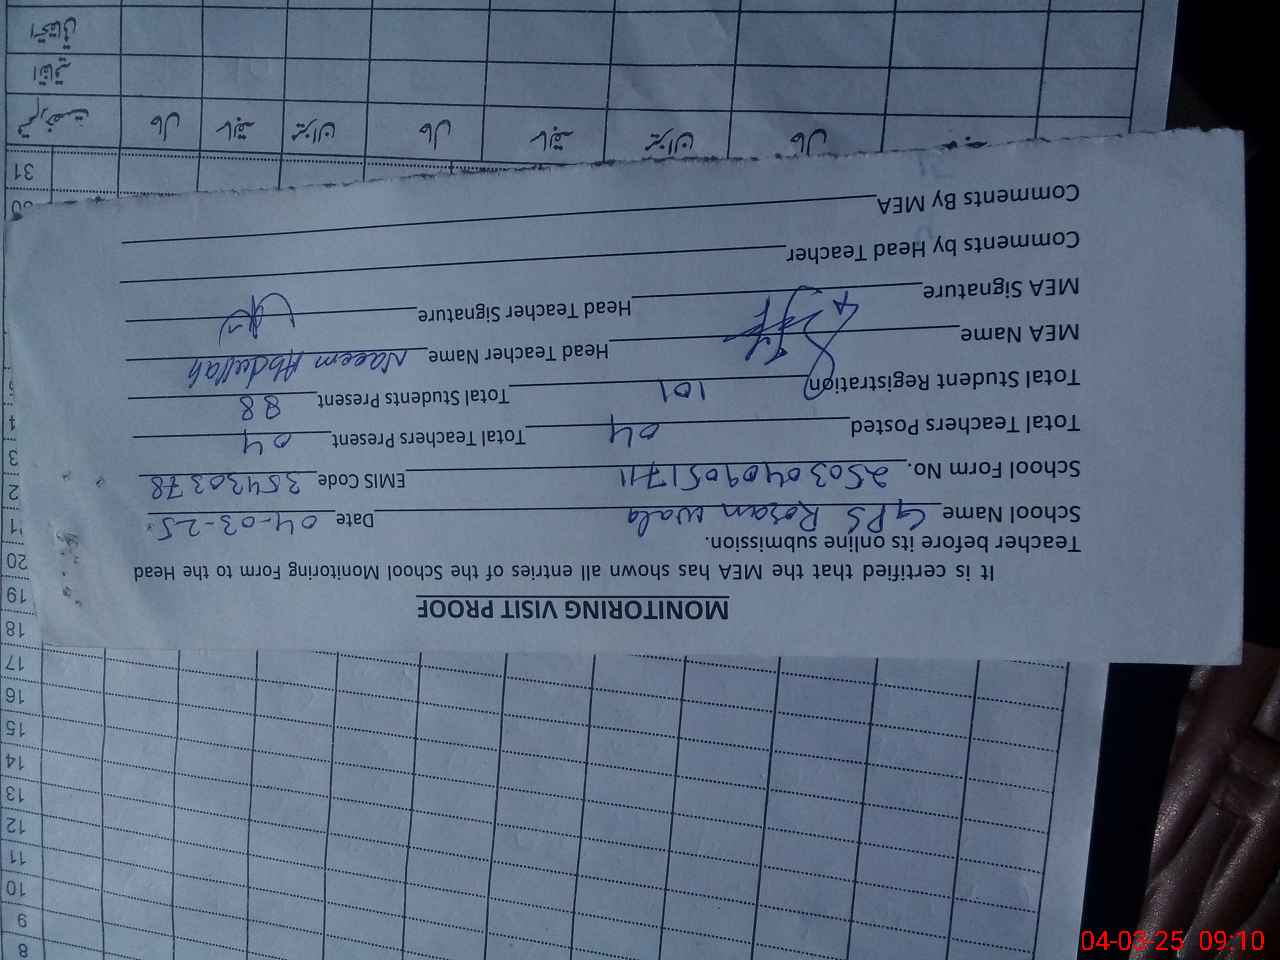 MONITORING VISIT PROOF
It is certified that the MEA has shown all entries of the School Monitoring Form to the Head
Teacher before its online submission.
School Name GPS Rozan wala Date 04-03-25
School Form No. 25030409051711 EMIS Code 35430378
Total Teachers Posted 04 Total Teachers Present 04
Total Student Registration 101 Total Students Present 88
MEA Name Head Teacher Name Naeem Abdullah
MEA Signature Head Teacher Signature
Comments by Head Teacher
Comments By MEA
31
حال سابقہ میزان حال سابقہ میزان حال
اتفاقیہ
استحقاقی
8
9
10
11
12
13
14
15
16
17
18
19
20
1
2
3
4
04-03-25 09:10